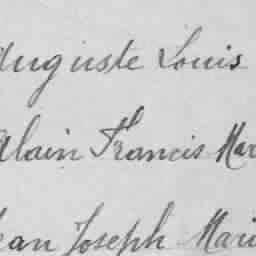 Auguste Louis
Alain Francis Mar
Jean Joseph Mari